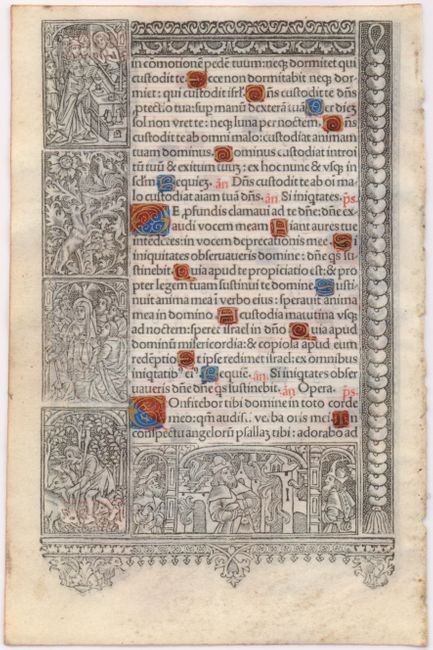 in comotionē pedē tuum: neq; dormitet qui
custodit te. Ecce non dormitabit neq; dor-
miet: qui custodit isrl. Dñs custodit te dñs
ꝓtectio tua: sup manū dexterā tuā. Per diē
sol non vret te: neq; luna per noctem. Dñs
custodit te ab omni malo: custodiat animam
tuam dominus. Dominus custodiat introi
tū tuū & exitum tuuz: ex hoc nunc & vsq; in
sclm. Requiez. añ Dñs custodit te ab oi ma
lo custodiat aīam tuā dñs. Si iniqtates. ps.
DE ꝓfundis clamaui ad te dñe: dñe ex
audi vocem meam. Fiant aures tue
intēdētes: in vocem deprecationis mee. Si
iniquitates obseruaueris domine: dñe qs su
stinebit. Quia apud te propiciatio est: & pro
pter legem tuam sustinui te domine. Susti
nuit anima mea ī verbo eius: sperauit anima
mea in domino. A custodia matutina vsq;
ad noctem: speret israel in dño. Quia apud
dominū misericordia: & copiosa apud eum
redēptio. Et ipse redimet israel: ex omnibus
iniqtatib9 ei9. Requiē. añ. Si iniqtates obser
uaueris dñe dñe qs sustinebit. añ. Opera. ps.
COnfitebor tibi domine in toto corde
meo: qm audisti verba oris mei. In
conspectu angelorū psallaz tibi: adorabo ad